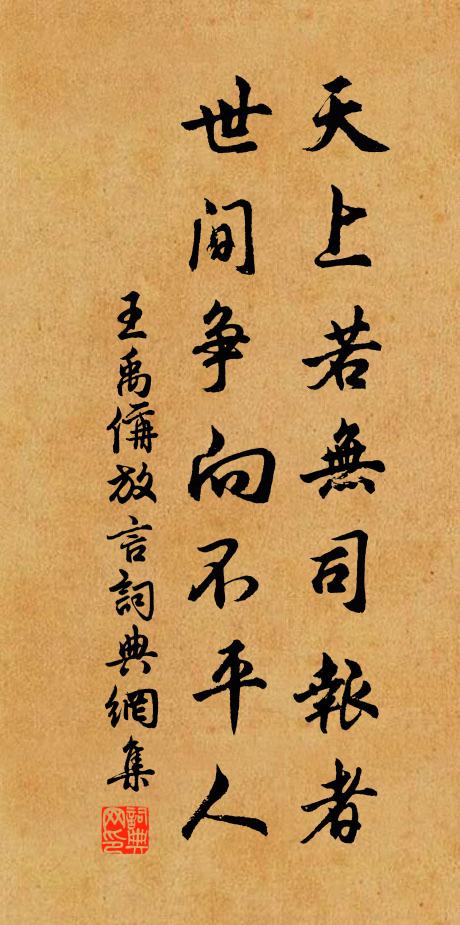 天上若無司報者
世間争向不平人
王禹偁放言詞典網集
詞典
网印